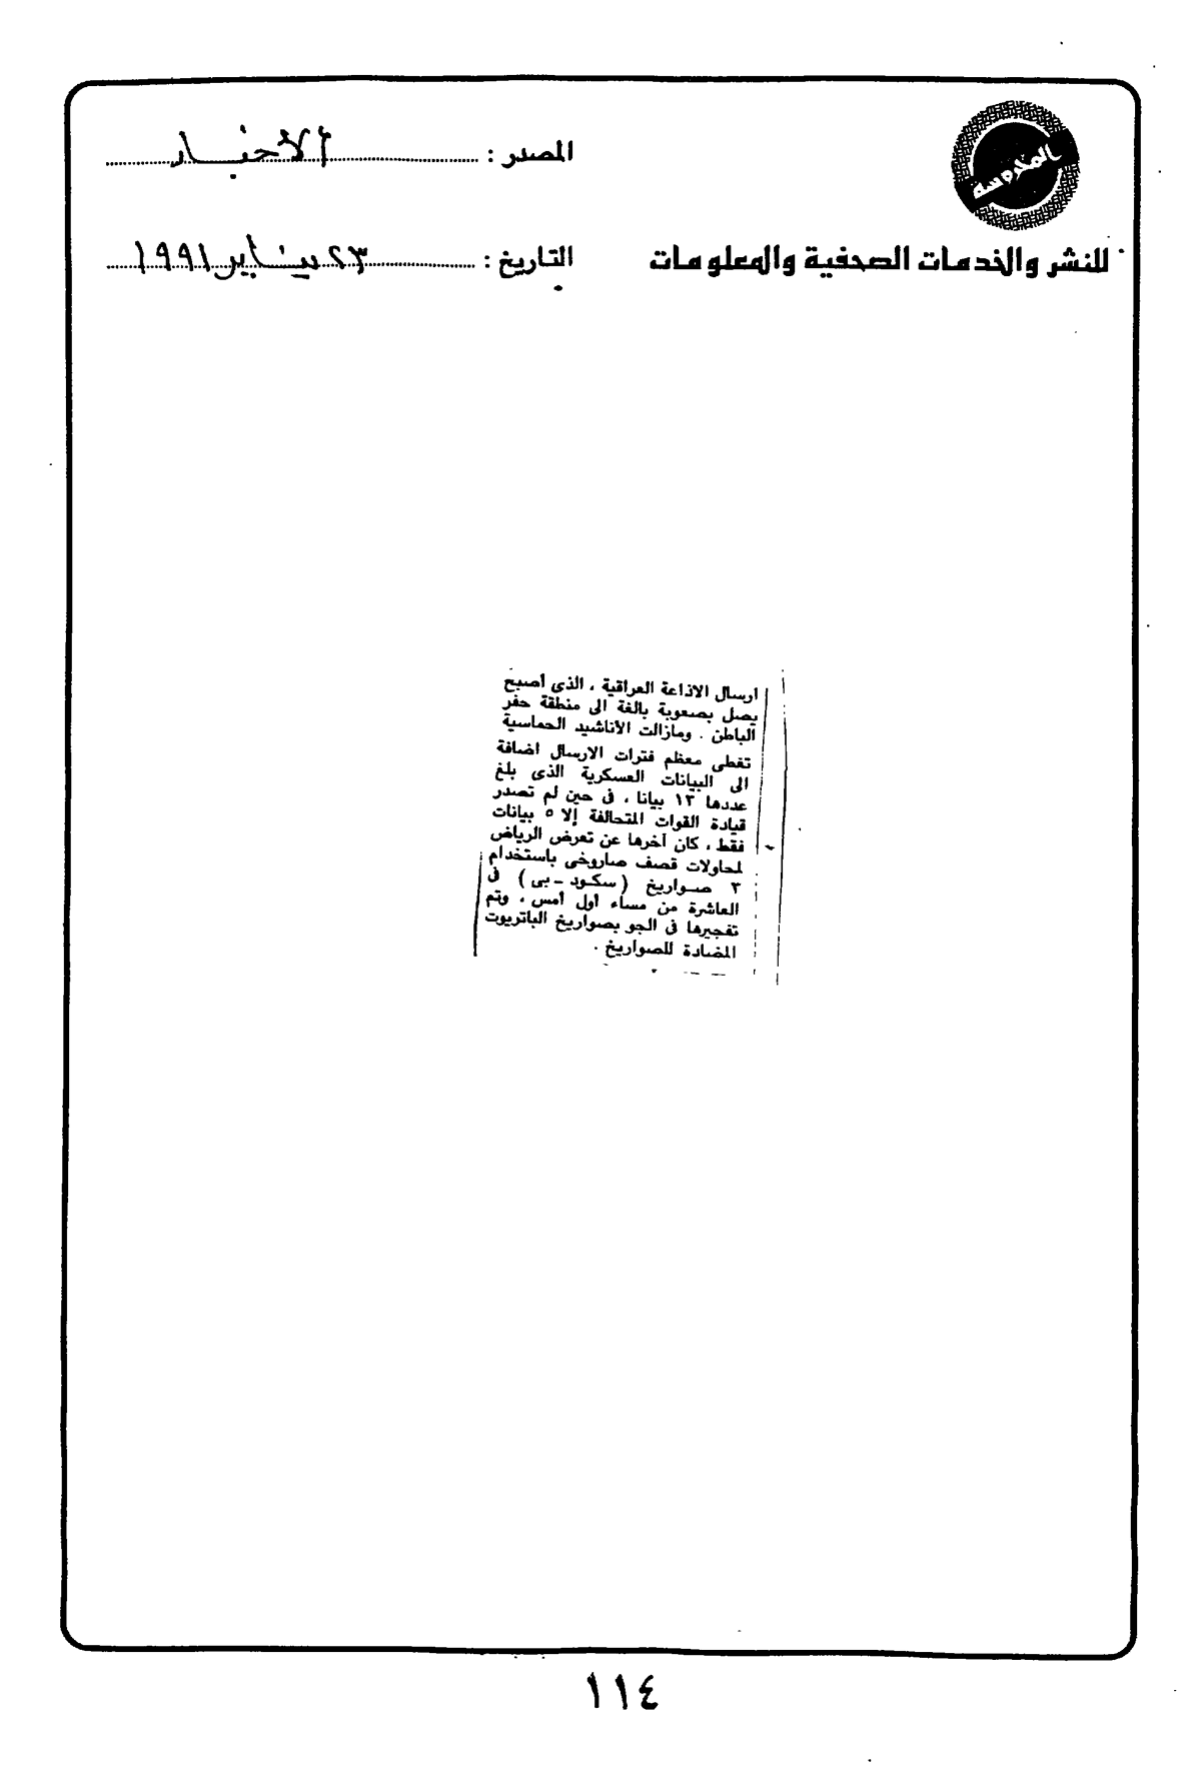 المحروسة
للنشر والخدمات الصحفية والمعلومات
المصدر : الأخبار
التاريخ : ٢٣ يناير ١٩٩١
ارسال الاذاعة العراقية ، الذى أصبح
يصل بصعوبة بالغة الى منطقة حفر
الباطن . ومازالت الأناشيد الحماسية
تغطى معظم فترات الارسال اضافة
الى البيانات العسكرية الذى بلغ
عددها ١٣ بيانا ، فى حين لم تصدر
قيادة القوات المتحالفة إلا ٥ بيانات
فقط ، كان آخرها عن تعرض الرياض
لمحاولات قصف صاروخى باستخدام
٣ صواريخ ( سكود - بى ) فى
العاشرة من مساء أول أمس ، وتم
تفجيرها فى الجو بصواريخ الباتريوت
المضادة للصواريخ .
١١٤